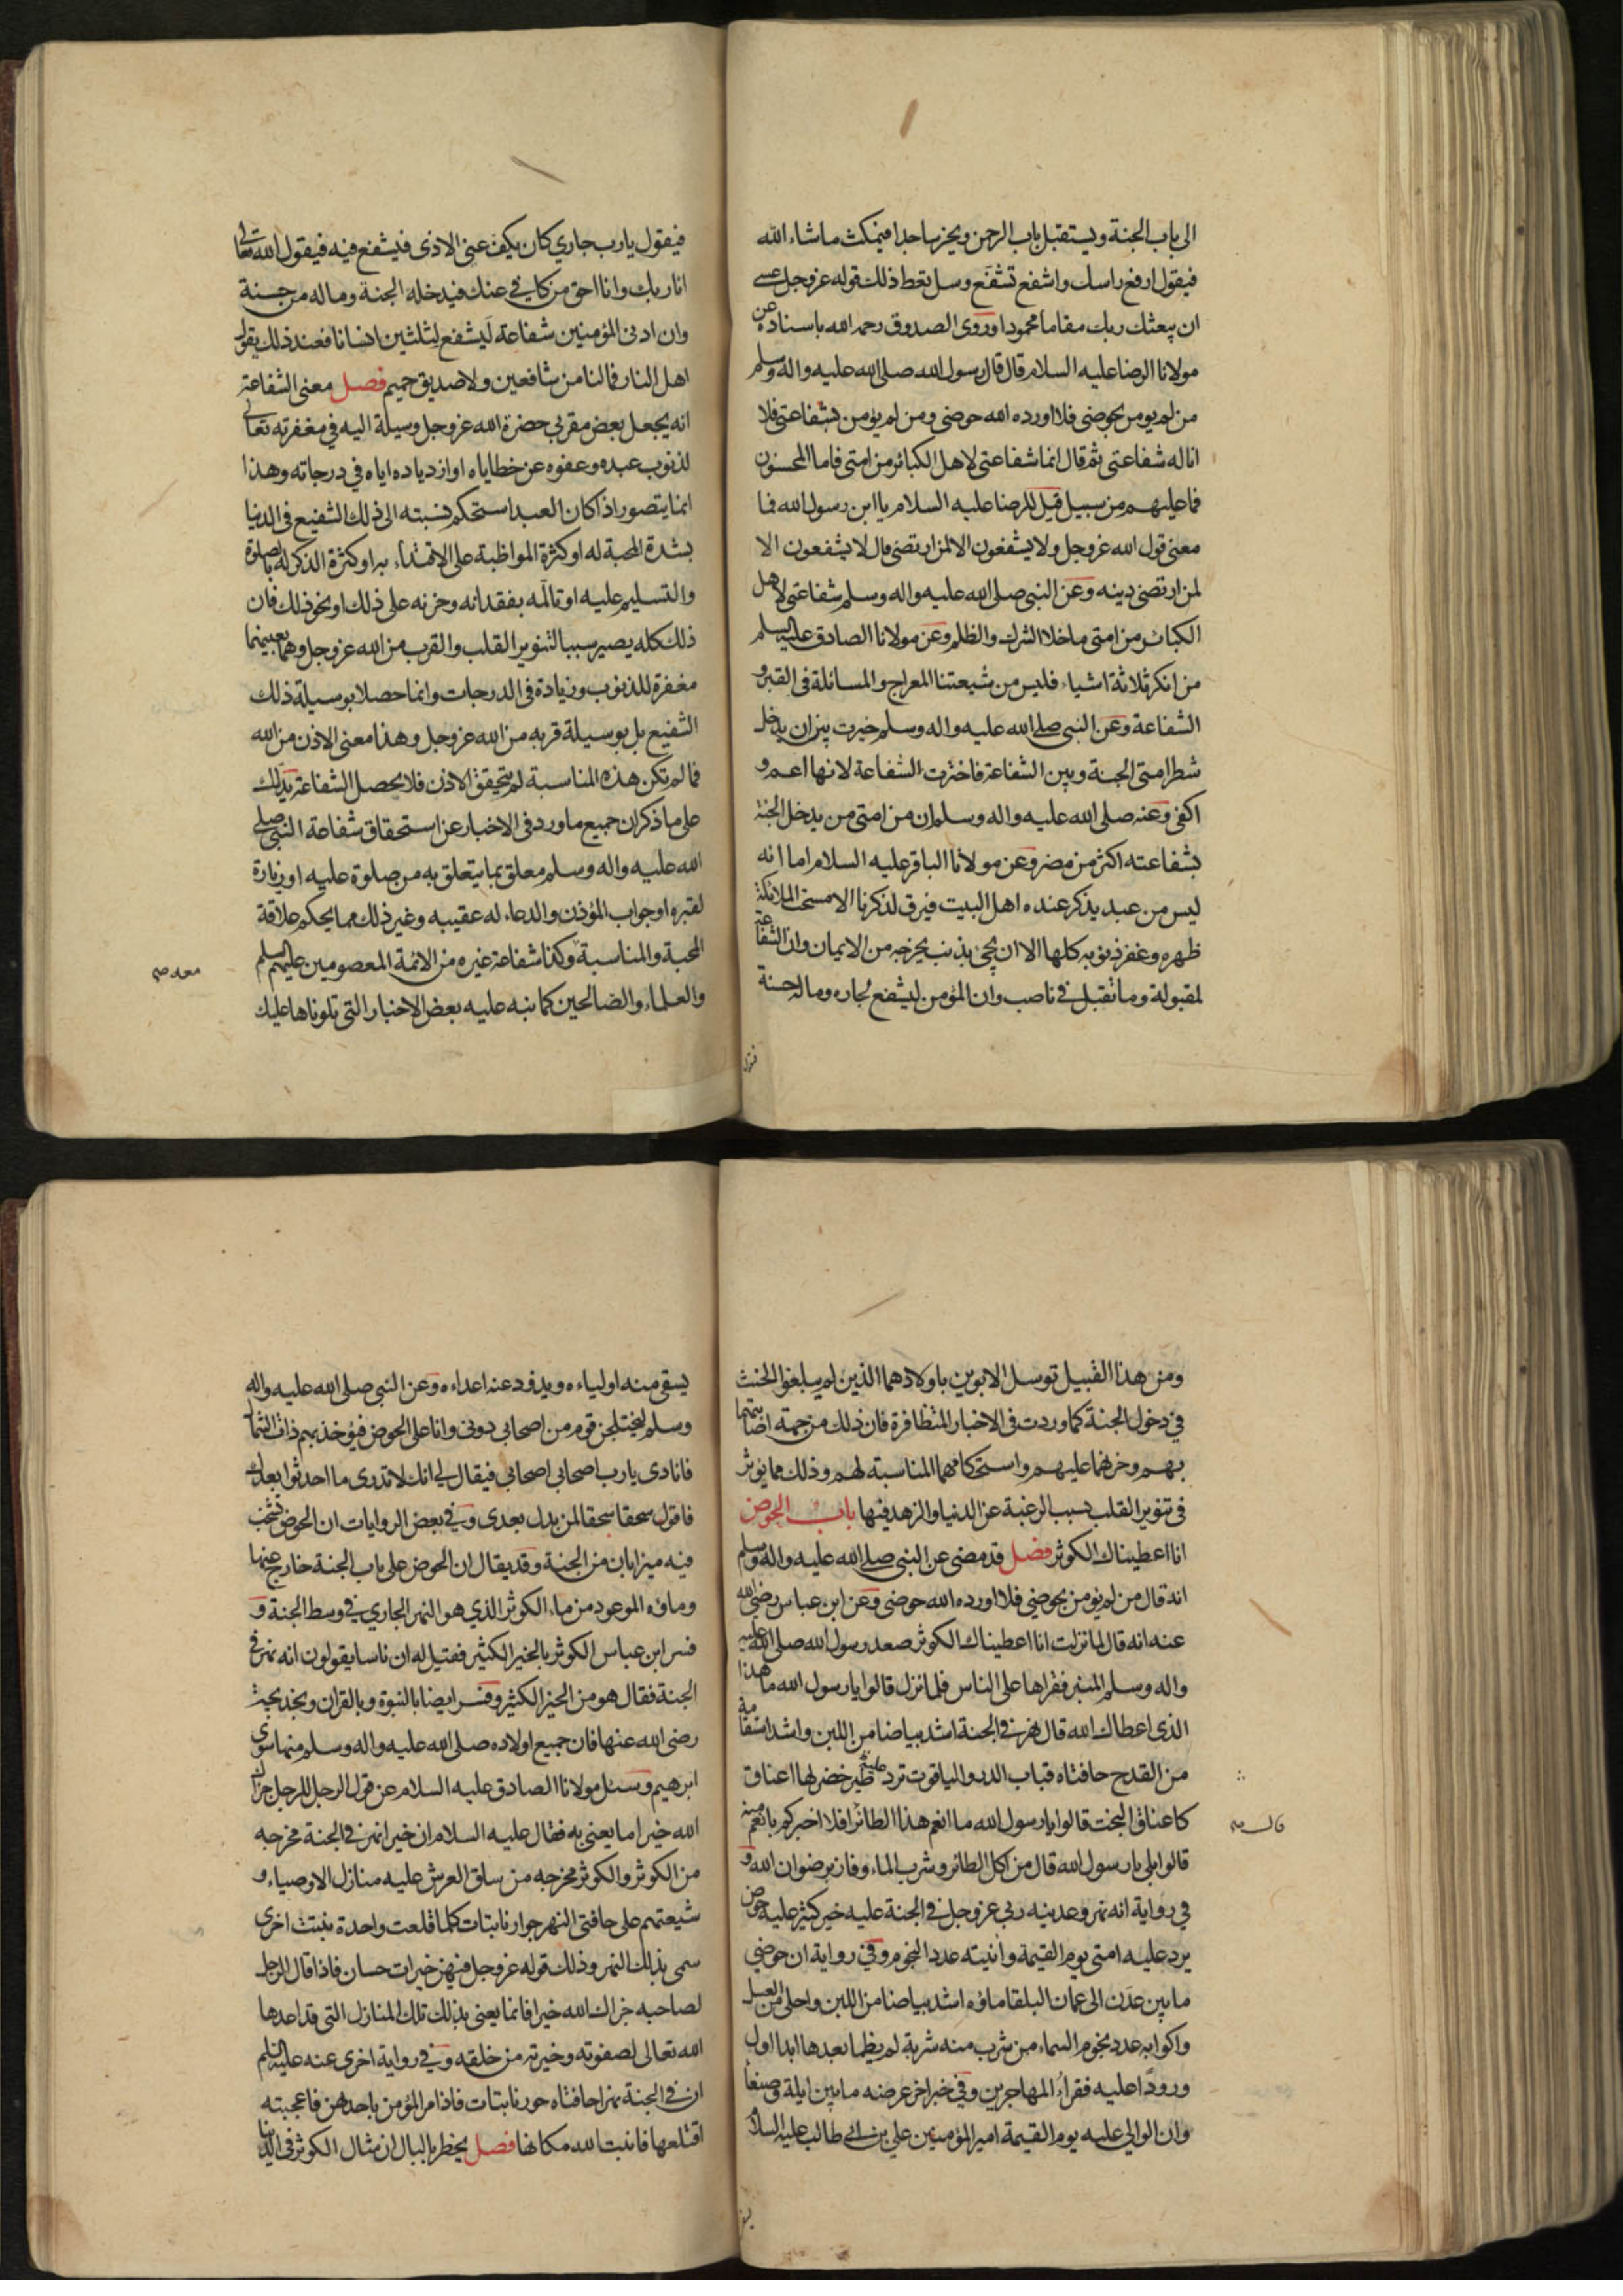 الى باب الجنة ويستقبل باب الرحمن ويخر ساجدا فيمكث ماشاء الله
فيقول ارفع راسك واشفع تشفع وسل تعط ذلك قوله عز وجل عسى
ان يبعثك ربك مقاما محمودا وروى الصدوق رحمه الله باسناده عن
مولانا الرضا عليه السلام قال قال رسول الله صلى الله عليه واله وسلم
من لم يومن بحوضى فلا اورده الله حوضى ومن لم يومن بشفاعتى فلا
اناله شفاعتى ثم قال انما شفاعتى لاهل الكبائر من امتى فاما المحسنون
فما عليهم من سبيل قيل للرضا عليه السلام يا ابن رسول الله فما
معنى قول الله عز وجل ولا يشفعون الا لمن ارتضى قال لا يشفعون الا
لمن ارتضى دينه وعن النبى صلى الله عليه واله وسلم شفاعتى لاهل
الكبائر من امتى ما خلا الشرك والظلم وعن مولانا الصادق عليه السلم
من انكر ثلاثة اشياء فليس من شيعتنا المعراج والمسائلة فى القبر و
الشفاعة وعن النبى صلى الله عليه واله وسلم خيرت بين ان يدخل
شطر امتى الجنة وبين الشفاعة فاخترت الشفاعة لانها اعم و
اكفى وعنه صلى الله عليه واله وسلم ان من امتى من يدخل الجنة
بشفاعته اكثر من مضر وعن مولانا الباقر عليه السلام اما انه
ليس من عبد يذكر عنده اهل البيت فيرق لذكرنا الا مسحت الملائكة
ظهره وغفر ذنوبه كلها الا ان يجئ بذنب يخرجه من الايمان وان الشفاعة
لمقبولة وما تقبل فى ناصب وان المؤمن ليشفع لجاره وماله حسنة
فيقول
فيقول يارب جاري كان يكف عنى الاذى فيشفع فيه فيقول الله تعالى
انا ربك وانا احق من كافي عنك فيدخله الجنة وماله من حسنة
وان ادنى المؤمنين شفاعة ليشفع لثلثين انسانا فعند ذلك يقول
اهل النار فمالنا من شافعين ولا صديق حميم فصل معنى الشفاعة
انه يجعل بعض مقربي حضرة الله عز وجل وسيلة اليه في مغفرته تعالى
لذنوب عبده وعفوه عن خطاياه او ازدياده اياه في درجاته وهذا
انما يتصور اذا كان العبد استحكم نسبته الى ذلك الشفيع فى الدنيا
بشدة المحبة له او كثرة المواظبة على الاقتداء به او كثرة الذكر له بالصلوة
والتسليم عليه او تالمه بفقدانه وحزنه على ذلك او نحو ذلك فان
ذلك كله يصير سببا لتنوير القلب والقرب من الله عز وجل وهما بعينهما
مغفرة للذنوب وزيادة فى الدرجات وانما حصلا بوسيلة ذلك
الشفيع بل بوسيلة قربه من الله عز وجل وهذا معنى الاذن من الله
فما لم تكن هذه المناسبة لم يتحقق الاذن فلا يحصل الشفاعة يدلك
على ما ذكر ان جميع ما ورد فى الاخبار عن استحقاق شفاعة النبى صلى
الله عليه واله وسلم معلق بما يتعلق به من صلوة عليه او زيارة
لقبره او جواب المؤذن والدعاء له عقيبه وغير ذلك مما يحكم علاقة
المحبة والمناسبة وكذا شفاعة غيره من الائمة المعصومين عليهم السلم
والعلماء والصالحين كما نبه عليه بعض الاخبار التى تلوناها عليك
ومن هذا القبيل توسل الابوين باولادهما الذين لم يبلغوا الحنث
في دخول الجنة كما وردت فى الاخبار المتظافرة فان ذلك من جهة
بهم وحزنهما عليهم واستحكامهما المناسبة لهم وذلك مما يوثر
فى تنوير القلب بسبب الرغبة عن الدنيا والزهد فيها باب الحوض
انا اعطيناك الكوثر فصل قد مضى عن النبى صلى الله عليه واله وسلم
انه قال من لم يومن بحوضي فلا اورده الله حوضى وعن ابن عباس رضى الله
عنه انه قال لما نزلت انا اعطيناك الكوثر صعد رسول الله صلى الله عليه
واله وسلم المنبر فقراها على الناس فلما نزل قالوا يا رسول الله ما هذا
الذى اعطاك الله قال نهر فى الجنة اشد بياضا من اللبن واشد استقامة
من القدح حافتاه قباب الدر والياقوت ترد عليه طير خضر لها اعناق
كاعناق البخت قالوا يا رسول الله ما انعم هذا الطائر افلا اخبركم بانعم منه
قالوا بلى يا رسول الله قال من اكل الطائر وشرب الماء وفاز برضوان الله و
في رواية انه نهر وعدنيه ربي عز وجل فى الجنة عليه خير كثير عليه حوض
يرد عليه امتى يوم القيمة وانيته عدد النجوم وفي رواية ان حوضي
ما بين عدن الى عمان البلقا ماؤه اشد بياضا من اللبن واحلى من العسل
واكوابه عدد نجوم السماء من شرب منه شربة لم يظما بعدها ابدا اول
ورودا عليه فقراء المهاجرين وفي خبر اخر عرضه ما بين ايلة وصنعا
وان الوالي عليه يوم القيمة امير المؤمنين علي بن ابي طالب عليه السلام
يسقى منه اولياءه ويذود عنه اعداءه وعن النبى صلى الله عليه واله
وسلم ليختلجن قوم من اصحابى دونى وانا على الحوض فيؤخذ بهم ذات الشمال
فانادى يا رب اصحابى اصحابي فيقال لي انك لا تدرى ما احدثوا بعدك
فاقول سحقا سحقا لمن بدل بعدى وفي بعض الروايات ان الحوض تشخب
فيه ميزابان من الجنة وقد يقال ان الحوض على باب الجنة خارج عنها
وماؤه الموعود من ماء الكوثر الذي هو النهر الجاري في وسط الجنة و
فسر ابن عباس الكوثر بالخير الكثير فقيل له ان ناسا يقولون انه نهر فى
الجنة فقال هو من الخير الكثير وفسر ايضا بالنبوة وبالقران وبخديجة
رضى الله عنها فان جميع اولاده صلى الله عليه واله وسلم منها سوى
ابرهيم وسئل مولانا الصادق عليه السلام عن قول الرجل للرجل جزاك
الله خيرا ما يعنى به فقال عليه السلام ان خيرا نهر فى الجنة مخرجه
من الكوثر والكوثر مخرجه من ساق العرش عليه منازل الاوصياء و
شيعتهم على حافتى النهر جوار نابتات كلما قلعت واحدة نبتت اخرى
سمى بذلك النهر وذلك قوله عز وجل فيهن خيرات حسان فاذا قال الرجل
لصاحبه جزاك الله خيرا فانما يعنى بذلك تلك المنازل التى قد اعدها
الله تعالى لصفوته وخيرته من خلقه وفي رواية اخرى عنه عليه السلم
ان فى الجنة نهرا حافتاه حور نابتات فاذا مر المؤمن باحدهن فاعجبته
اقتلعها فانبت الله مكانها فصل يخطر بالبال ان مثال الكوثر فى الدنيا